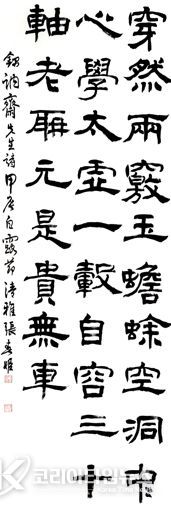 穿然兩竅玉蟾蜍空洞中
心學太虛一轂自容三十
軸老聃元是貴無車
先生詩甲辰白露節 清雅張春姬
코리아타임뉴스